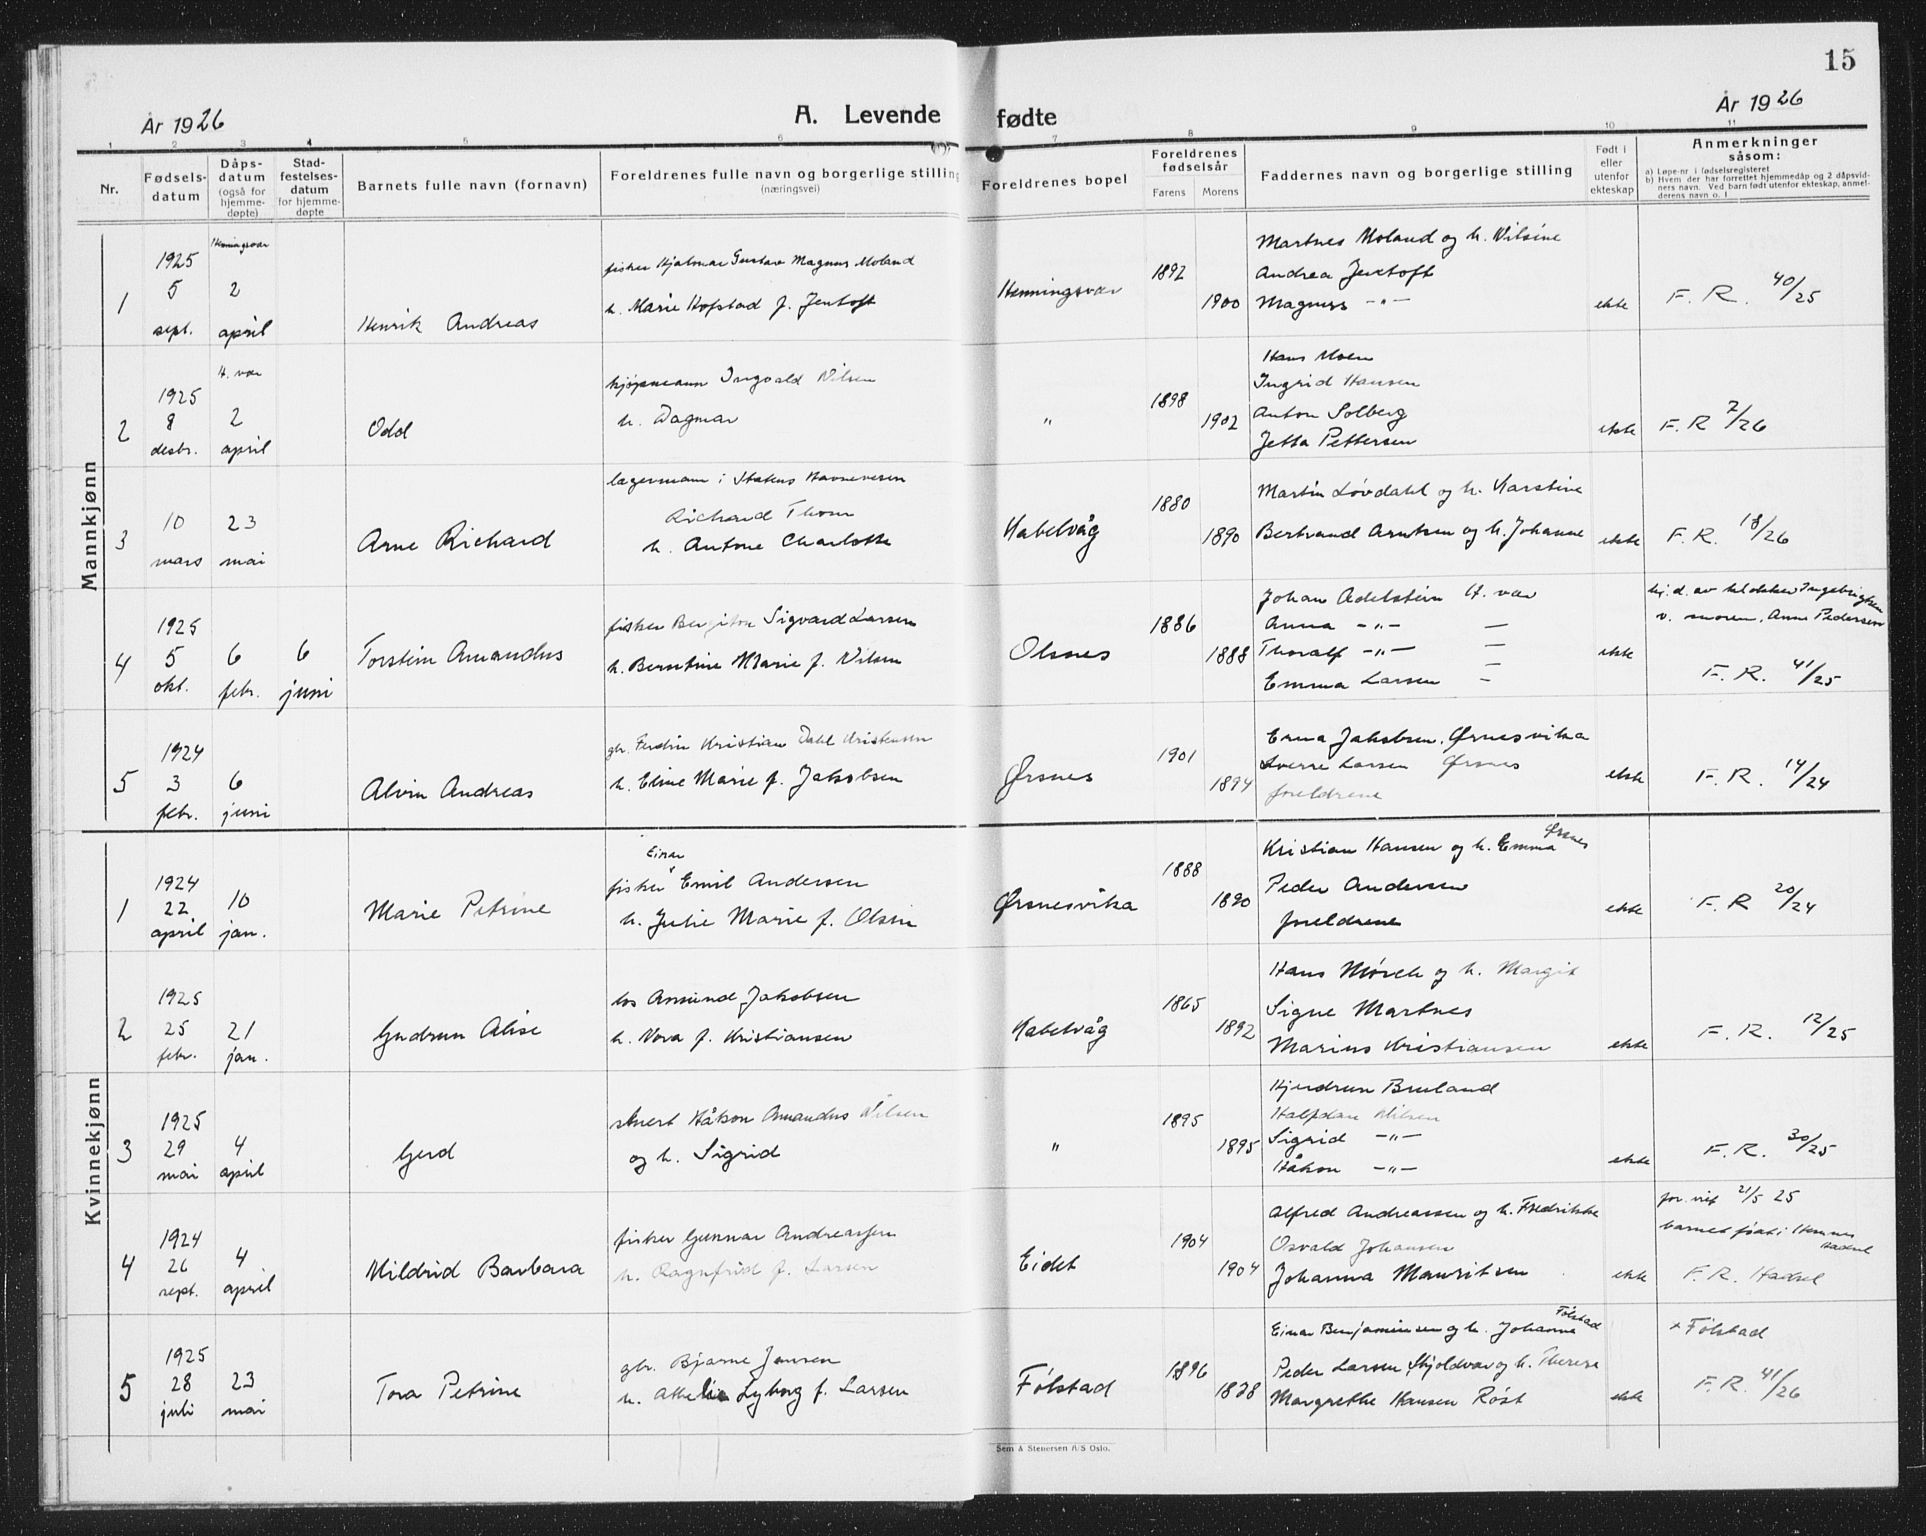 15
År 1926 A. Levende fødte År 1926
1 2 3 4 5 6 7 8 9 10 11
Nr. Fødsels-datum Dåps-datum (også for hjemme-døpte) Stad-festelses-datum for hjemme-døpte Barnets fulle navn (fornavn) Foreldrenes fulle navn og borgerlige stilling (næringsvei) Foreldrenes bopel Foreldrenes fødselsår Farens Morens Faddernes navn og borgerlige stilling Født i eller utenfor ekteskap Anmerkninger såsom:
a) Løpe-nr i fødselsregisteret
b) Hvem der har forrettet hjemmedåp og 2 dåpsvid-
ners navn. Ved barn født utenfor ekteskap, anmel-
derens navn o. l
Mannkjønn
Henningsvær
1 1925 5 sept. 2 april Henrik Andreas
fisker Hjalmar Gustav Magnus Moland
h. Marie Hofstad f. Jentoft
Henningsvær 1892 1900
Martnes Moland og h. Nilsine
Andrea Jentoft
Magnus -"-
ekte F. R. 40/25
H. vær
2 1925 8 desbr. 2 april Odd
kjøpmann Ingvald Nilsen
h. Dagmar
" 1898 1902
Hans Moen
Ingrid Hansen
Anton Solberg
Jetta Pettersen
ekte F. R 7/26
3 10 mars 23 mai Arne Richard
lagermann i Statens Havnevesen
Richard Thom
h. Antone Charlotte
Kabelvåg 1880 1890
Martin Løvdahl og h. Karstine
Bertrand Arntsen og h. Johanne
ekte F. R. 18/26
4 1925 5 okt. 6 febr. 6 juni Torstein Amandus
fisker Bergiton Sigvard Larsen
h. Berntine Marie f. Nilsen
Olsnes 1886 1888
Johan Adelstein H. vær
Anna -"- —
Thoralf -"- —
Emma Larsen -
ekte
hj. d. av klokker Ingebrigtsen
v. moren, Anne Pedersen
F. R. 41/25
5 1924 3 febr. 6 juni Alvin Andreas
gbr. Ferdin Kristian Dahl Kristensen
h. Eline Marie f. Jakobsen
Ørsnes 1901 1894
Erna Jakobsen, Ørnesvika
Sverre Larsen Ørsnes
foreldrene
ekte F. R. 14/24
Kvinnekjønn
1 1924 22 april 10 jan. Marie Petrine
Einar
fisker Emil Andersen
h. Julie Marie f. Olsen
Ørsnesvika 1888 1890
Kristian Hansen og h. Emma Ørsnes
Peder Andersen
foreldrene
ekte F. R 20/24
2 1925 25 febr. 21 jan. Gudrun Alise
los Amund Jakobsen
h. Nora f. Kristiansen
Kabelvåg 1865 1892
Hans Mørch og h. Margit
Signe Martnes
Marius Kristiansen
ekte F. R. 12/25
3 1925 29 mai 4 april Gerd
Håkon Amandus Nilsen
og h. Sigrid
" 1895 1895
Hjerdrun Bruland
Halfdan Nilsen
Sigrid -"-
Håkon -"-
ekte F. R. 30/25
4 1924 26 sept. 4 april Mildrid Barbara
fisker Gunnar Andreassen
h. Ragnfrid f. Larsen
Eidet 1904 1904
Alfred Andreassen og h. Fredrikke
Osvald Johansen
Johanna Mauritsen
ekte
for. viet 21/5 25
barnet født i Hennes Hadsel
F. R. Hadsel
5 1925 28 juli 23 mai Tora Petrine
gbr. Bjarne Jensen
h. Lyborg f. Larsen
Følstad 1896 1898
Einar Benjaminsen og h. Johanne Følstad
Peder Larsen, Skjoldvær og h. Therese
Margrethe Hansen Røst
ekte × Følstad
F. R. 41/26
Sem & Stenersen A/S Oslo.